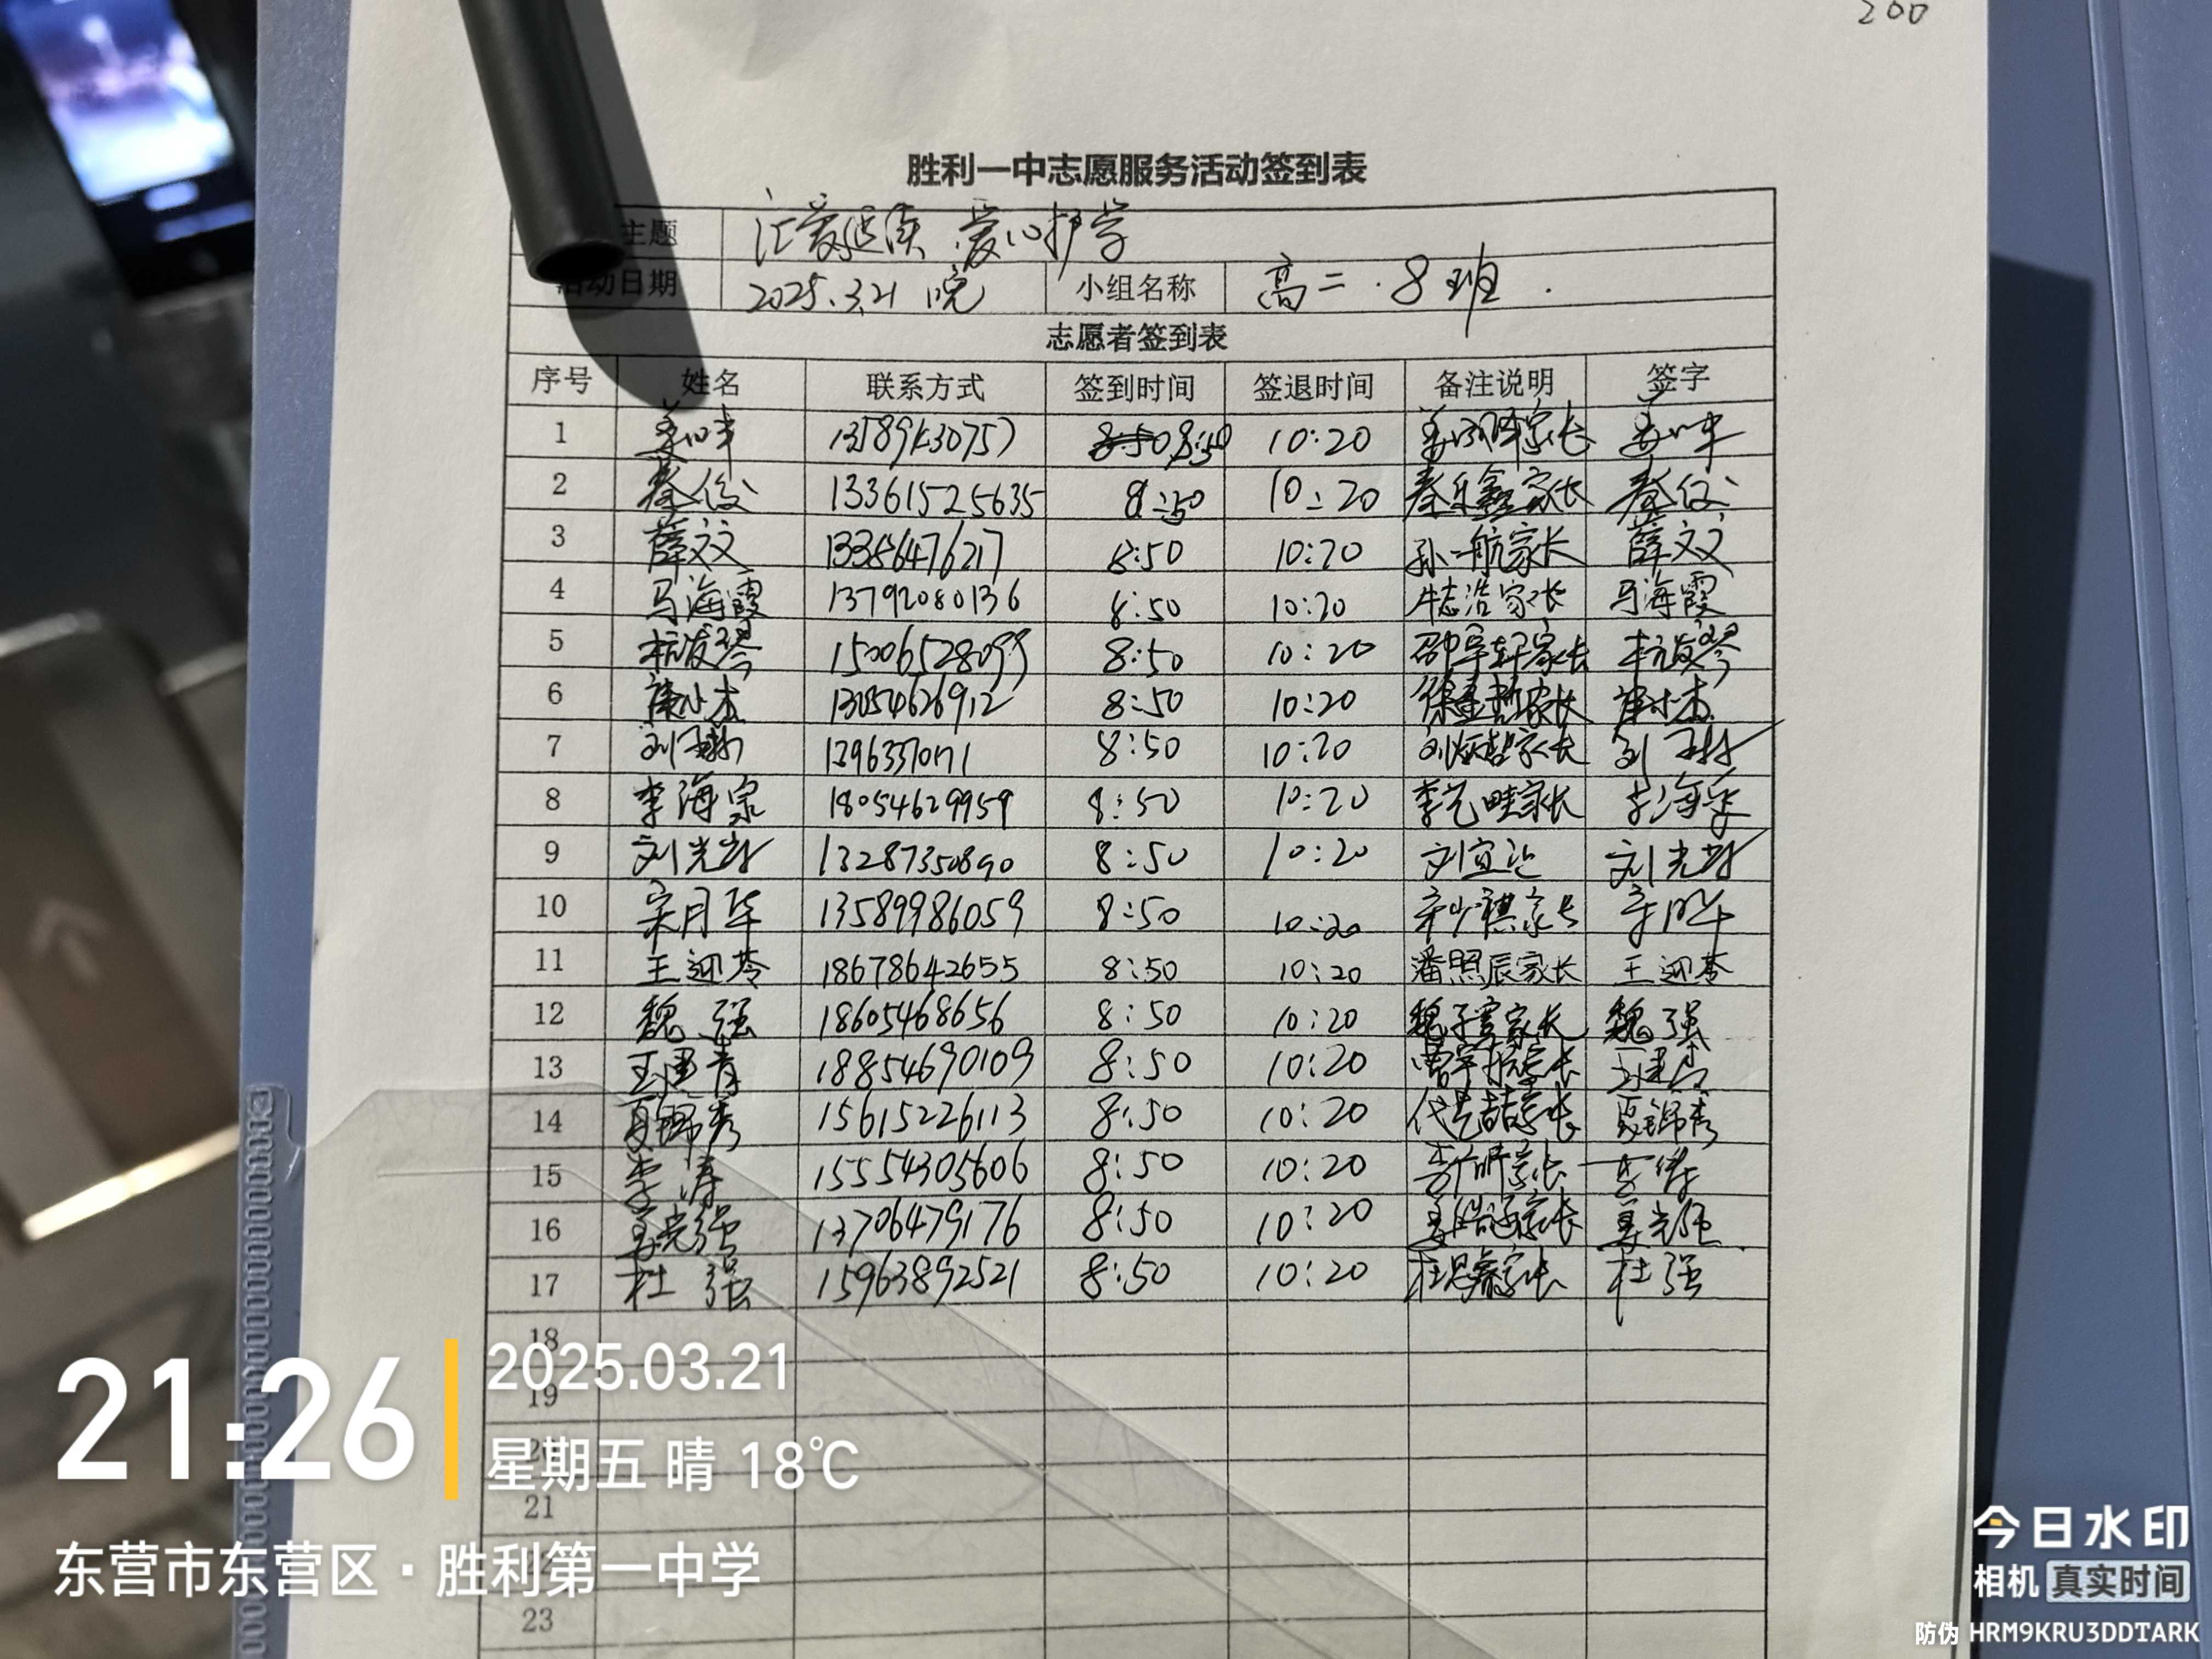 200
胜利一中志愿服务活动签到表
主题 汇爱 爱心护学
活动日期 2025.3.21 晚 小组名称 高二.8班.
志愿者签到表
序号 姓名 联系方式 签到时间 签退时间 备注说明 签字
1 8:50 8:50 10:20 家长
2 秦俊 13361525635 8:50 10:20 秦乐鑫家长 秦俊
3 薛文文 13356476217 8:50 10:20 孙一航家长 薛文文
4 马海霞 13792080136 8:50 10:20 牛志浩家长 马海霞
5 杭发琴 15006528099 8:50 10:20 邵宇轩家长 杭发琴
6 13054626912 8:50 10:20 家长
7 刘 8:50 10:20 刘炳哲家长 刘
8 李海泉 18054629959 8:50 10:20 李艺畦家长 李海泉
9 刘光 13287350890 8:50 10:20 刘宜 刘光
10 宋月华 13589986059 8:50 10:20 家长 宋月华
11 王迎苓 18678642655 8:50 10:20 潘照辰家长 王迎苓
12 魏强 18605468656 8:50 10:20 魏子雯家长 魏强
13 王建青 18854690109 8:50 10:20 曹宇 家长 王建青
14 夏锦秀 15615226113 8:50 10:20 家长 夏锦秀
15 李涛 15554305606 8:50 10:20 家长 李涛
16 姜光强 13706479176 8:50 10:20 姜 家长 姜光强
17 杜强 15963892521 8:50 10:20 杜 家长 杜强
18
19
20
21
23
21:26
2025.03.21
星期五 晴 18℃
东营市东营区·胜利第一中学
今日水印
相机 真实时间
防伪 HRM9KRU3DDTARK